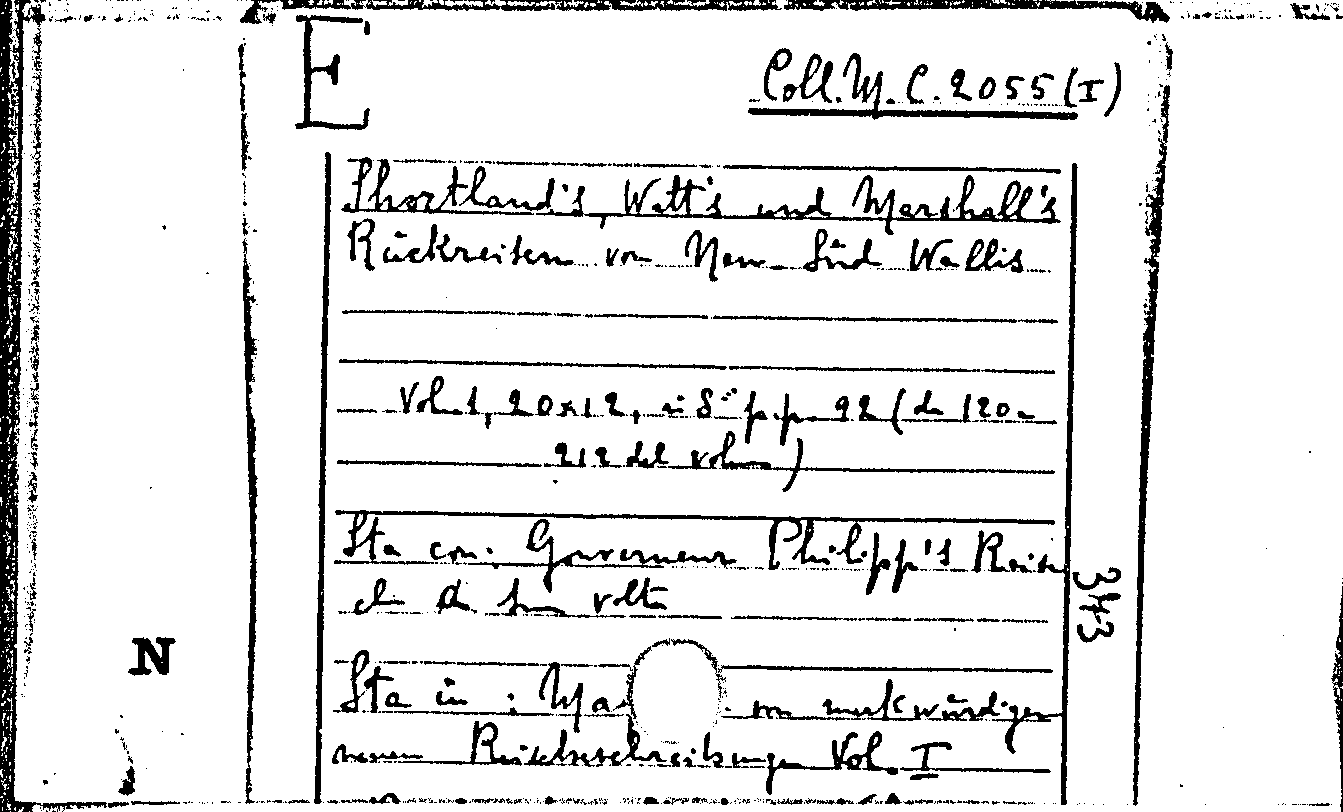 E
Coll. M. C. 2055 (I)
Shortland's, Watt's und Marshall's
Rückreisen von Neu Süd Wallis
Vol. 1, 20x12, in 8° p.p. 92 (da 120 a
212 del volume)
Sta con: Gouverneur Philipp's Reise
che a sua volta
343
N
Sta in: Ma von merkwürdigen
neuen Reisebeschreibungen Vol. I